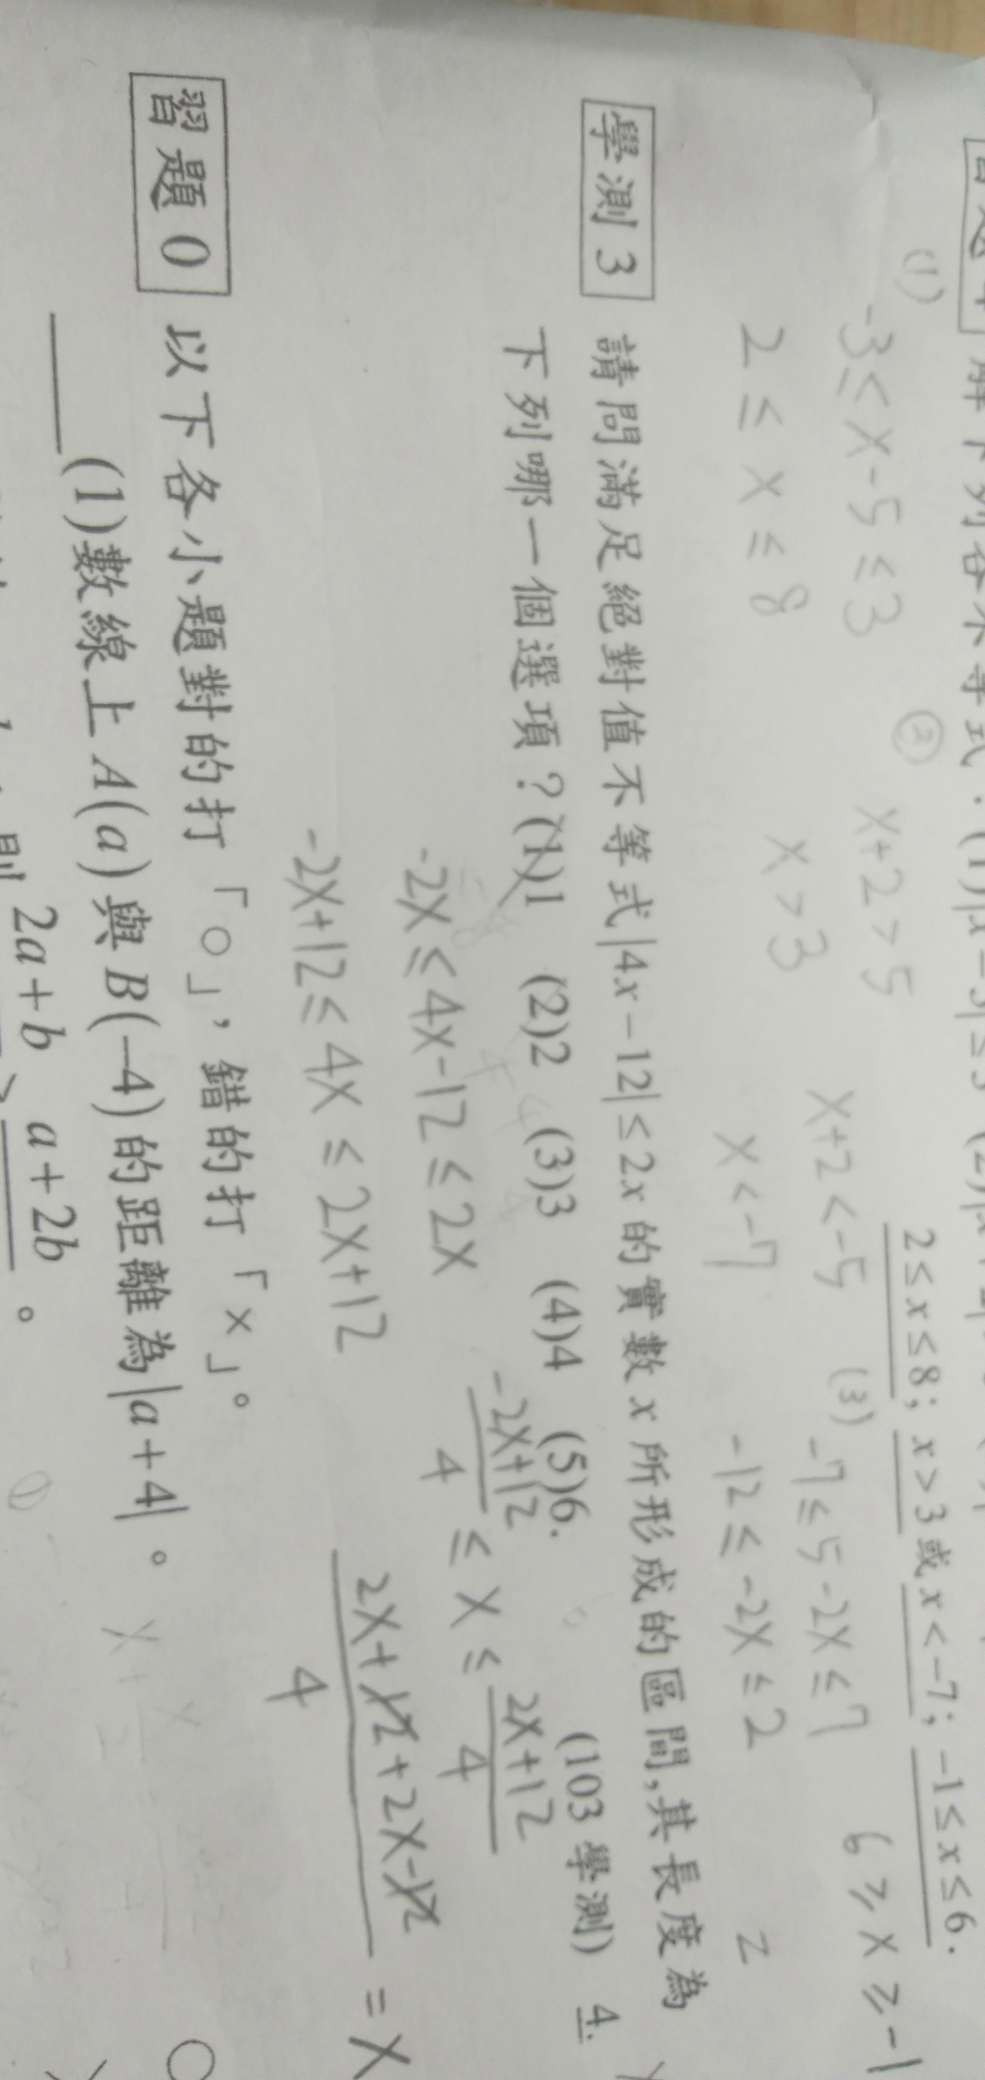 解下列各不等式:(1)|x-5|≤3 (2)
2≤x≤8; x>3或x<-7; -1≤x≤6.
(1) -3≤x-5≤3
2≤x≤8
② x+2>5 x+2<-5
x>3 x<-7
(3) -7≤5-2x≤7 6≥x≥-1
-12≤-2x≤2
學測 3 請問滿足絕對值不等式|4x-12|≤2x的實數x所形成的區間,其長度為
下列哪一個選項?(1)1 (2)2 (3)3 (4)4 (5)6. (103學測) 4.
-2x≤4x-12≤2x
-2x+12≤4x≤2x+12
-2x+12/4 ≤ x ≤ 2x+12/4
2x+12+2x-12/4 = x
習題 0 以下各小題對的打「○」,錯的打「×」。
(1)數線上A(a)與B(-4)的距離為|a+4|。
2a+b a+2b。